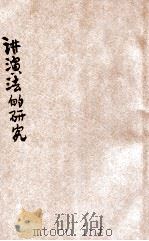 讲演法的研究
研狗